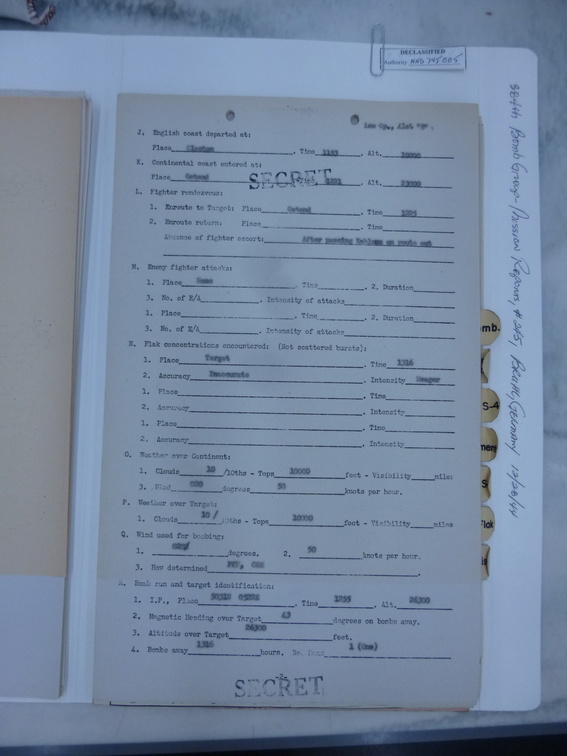 DECLASSIFIED
Authority NND 745005
J. English coast departed at:
Place Clacton, Time Alt.
K. Continental coast entered at:
Place Ostend Alt.
SECRET
L. Fighter rendezvous:
1. Enroute to Target: Place Ostend, Time
2. Enroute return: Place Time
Absence of fighter escort: After passing Koblenz on route out
M. Enemy fighter attacks:
1. Place None, Time, 2. Duration
3. No. of E/A, Intensity of attacks
1. Place, Time, 2. Duration
3. No. of E/A, Intensity of attacks
N. Flak concentrations encountered: (Not scattered bursts):
1. Place Target, Time 1316
2. Accuracy Inaccurate, Intensity Meager
1. Place, Time
2. Accuracy, Intensity
1. Place, Time
2. Accuracy, Intensity
O. Weather over Continent:
1. Clouds 10 /10ths - Tops 10000 feet - Visibility miles
3. Wind degrees 50 knots per hour.
P. Weather over Target:
1. Clouds 10 /10ths - Tops 10000 feet - Visibility miles
Q. Wind used for bombing:
1. degrees. 2. 50 knots per hour.
3. How determined
R. Bomb run and target identification:
1. I.P., Place, Time 1255, Alt. 26300
2. Magnetic Heading over Target 43 degrees on bombs away.
3. Altitude over Target 26300 feet.
4. Bombs away 1316 hours, No. Runs 1 (One)
SECRET
384th Bomb Group - Mission Reports, # 245, Bruhl, Germany 12/28/44
mb.
S-4
S
Flak